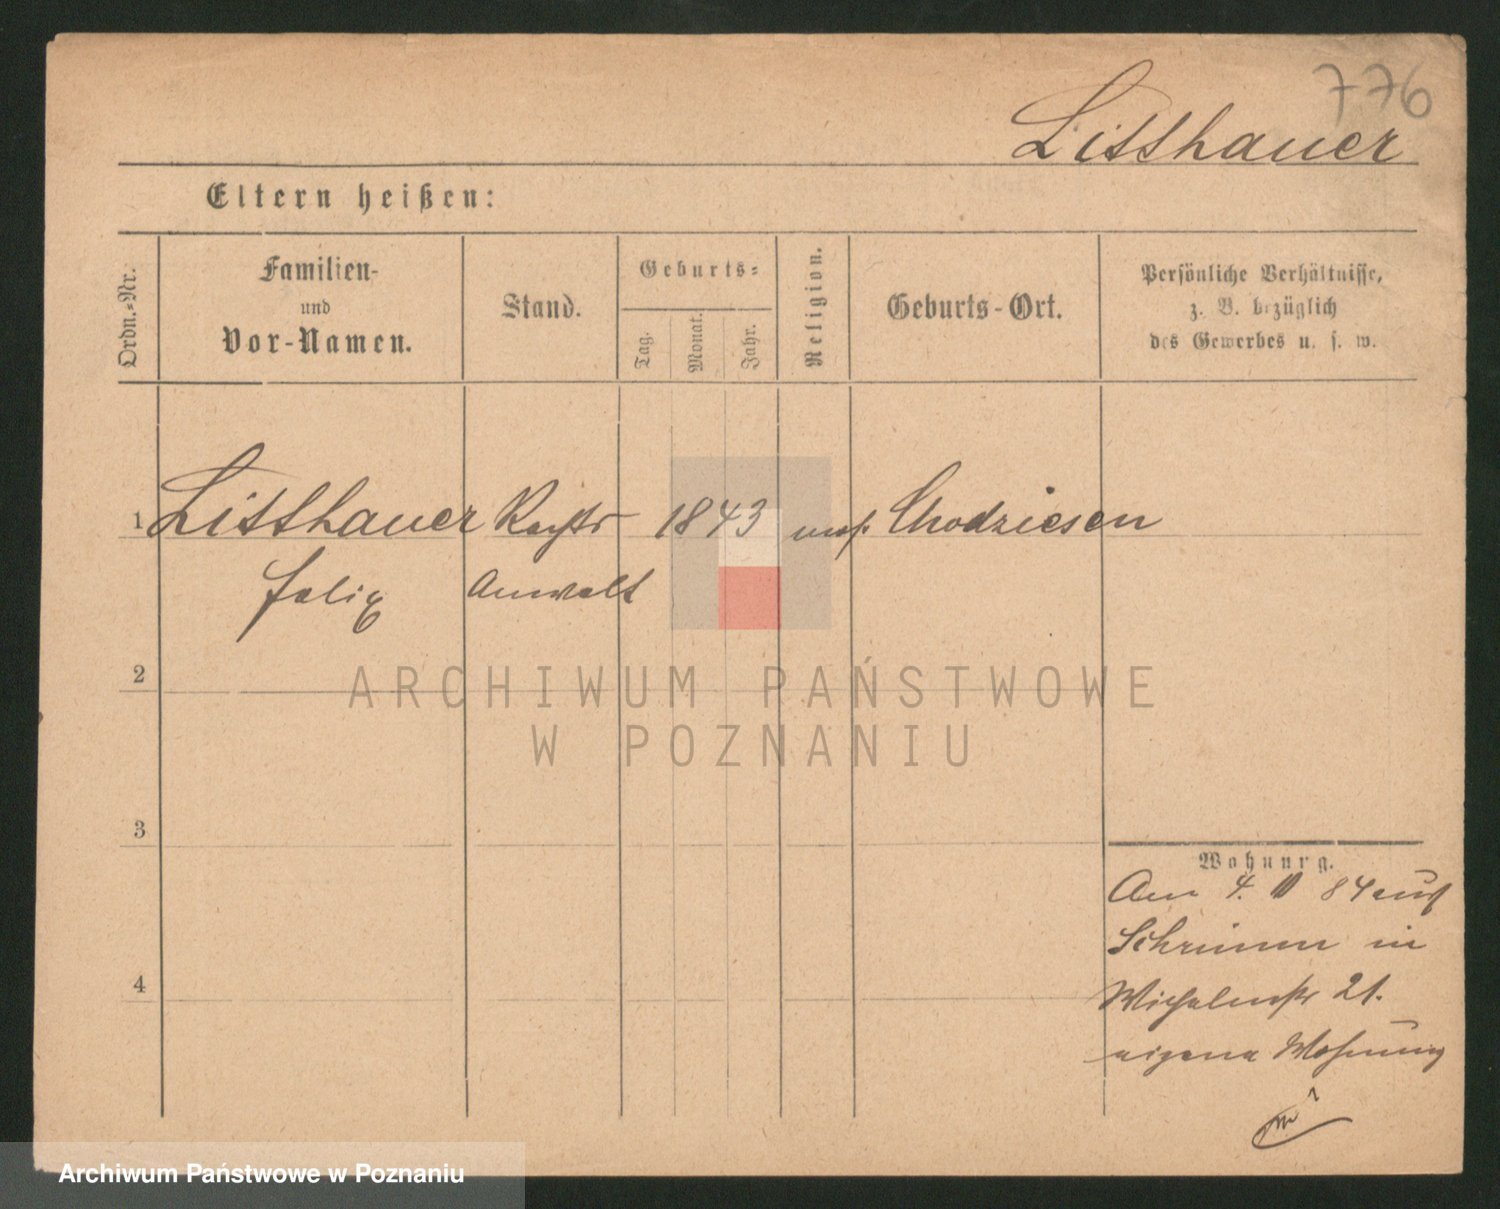 776
Litthauer
Eltern heißen:
Ordn.-Nr.
Familien-
und
Vor-Namen.
Stand.
Geburts-
Tag.
Monat.
Jahr.
Religion.
Geburts-Ort.
Persönliche Verhältnisse,
z. B. bezüglich
des Gewerbes u. s. w.
1 Litthauer Rechts 1843 mos. Chodziesen
Felix Anwalt
2
ARCHIWUM PAŃSTWOWE
W POZNANIU
3
Wohnung.
4. 84
Schrimm in
Wilhelmstr 21.
eigene Wohnung
4
Archiwum Państwowe w Poznaniu